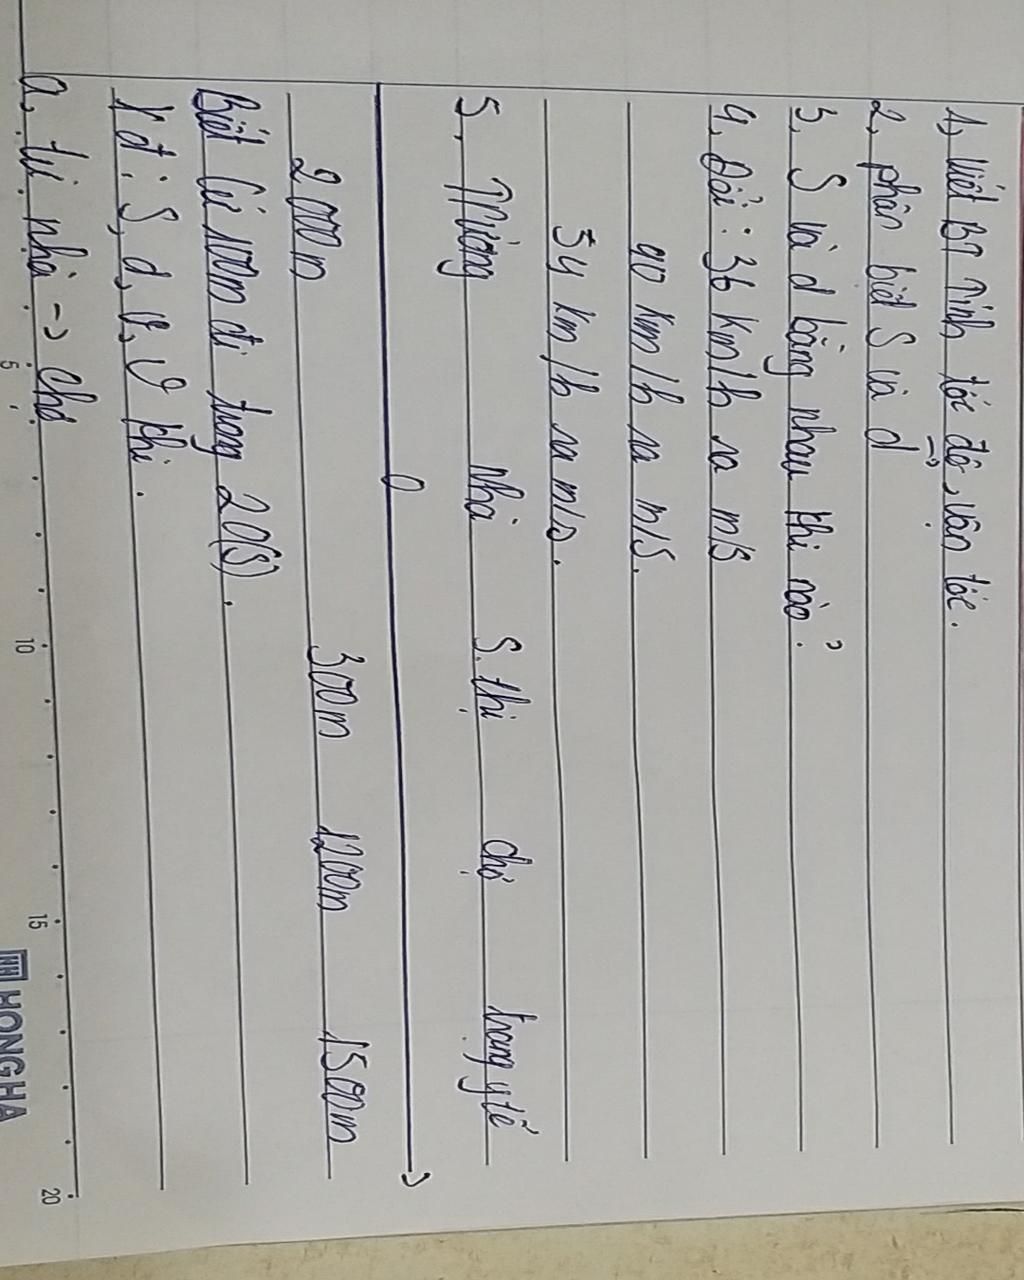 1, Viết BT tính tốc độ, vận tốc.
2, phân biệt S và d
3, S và d bằng nhau khi nào?
4, Đổi: 36 km/h ra m/s
90 km/h ra m/s.
54 km/h ra m/s.
5, Trường Nhà S.thị chợ trạm y tế
0
2000m 300m 1200m 1500m
Biết Cứ 100m đi trong 20(s).
X đ: S, d, v, v khi.
a, từ nhà -> chợ
5 10 15 20
HONG HA